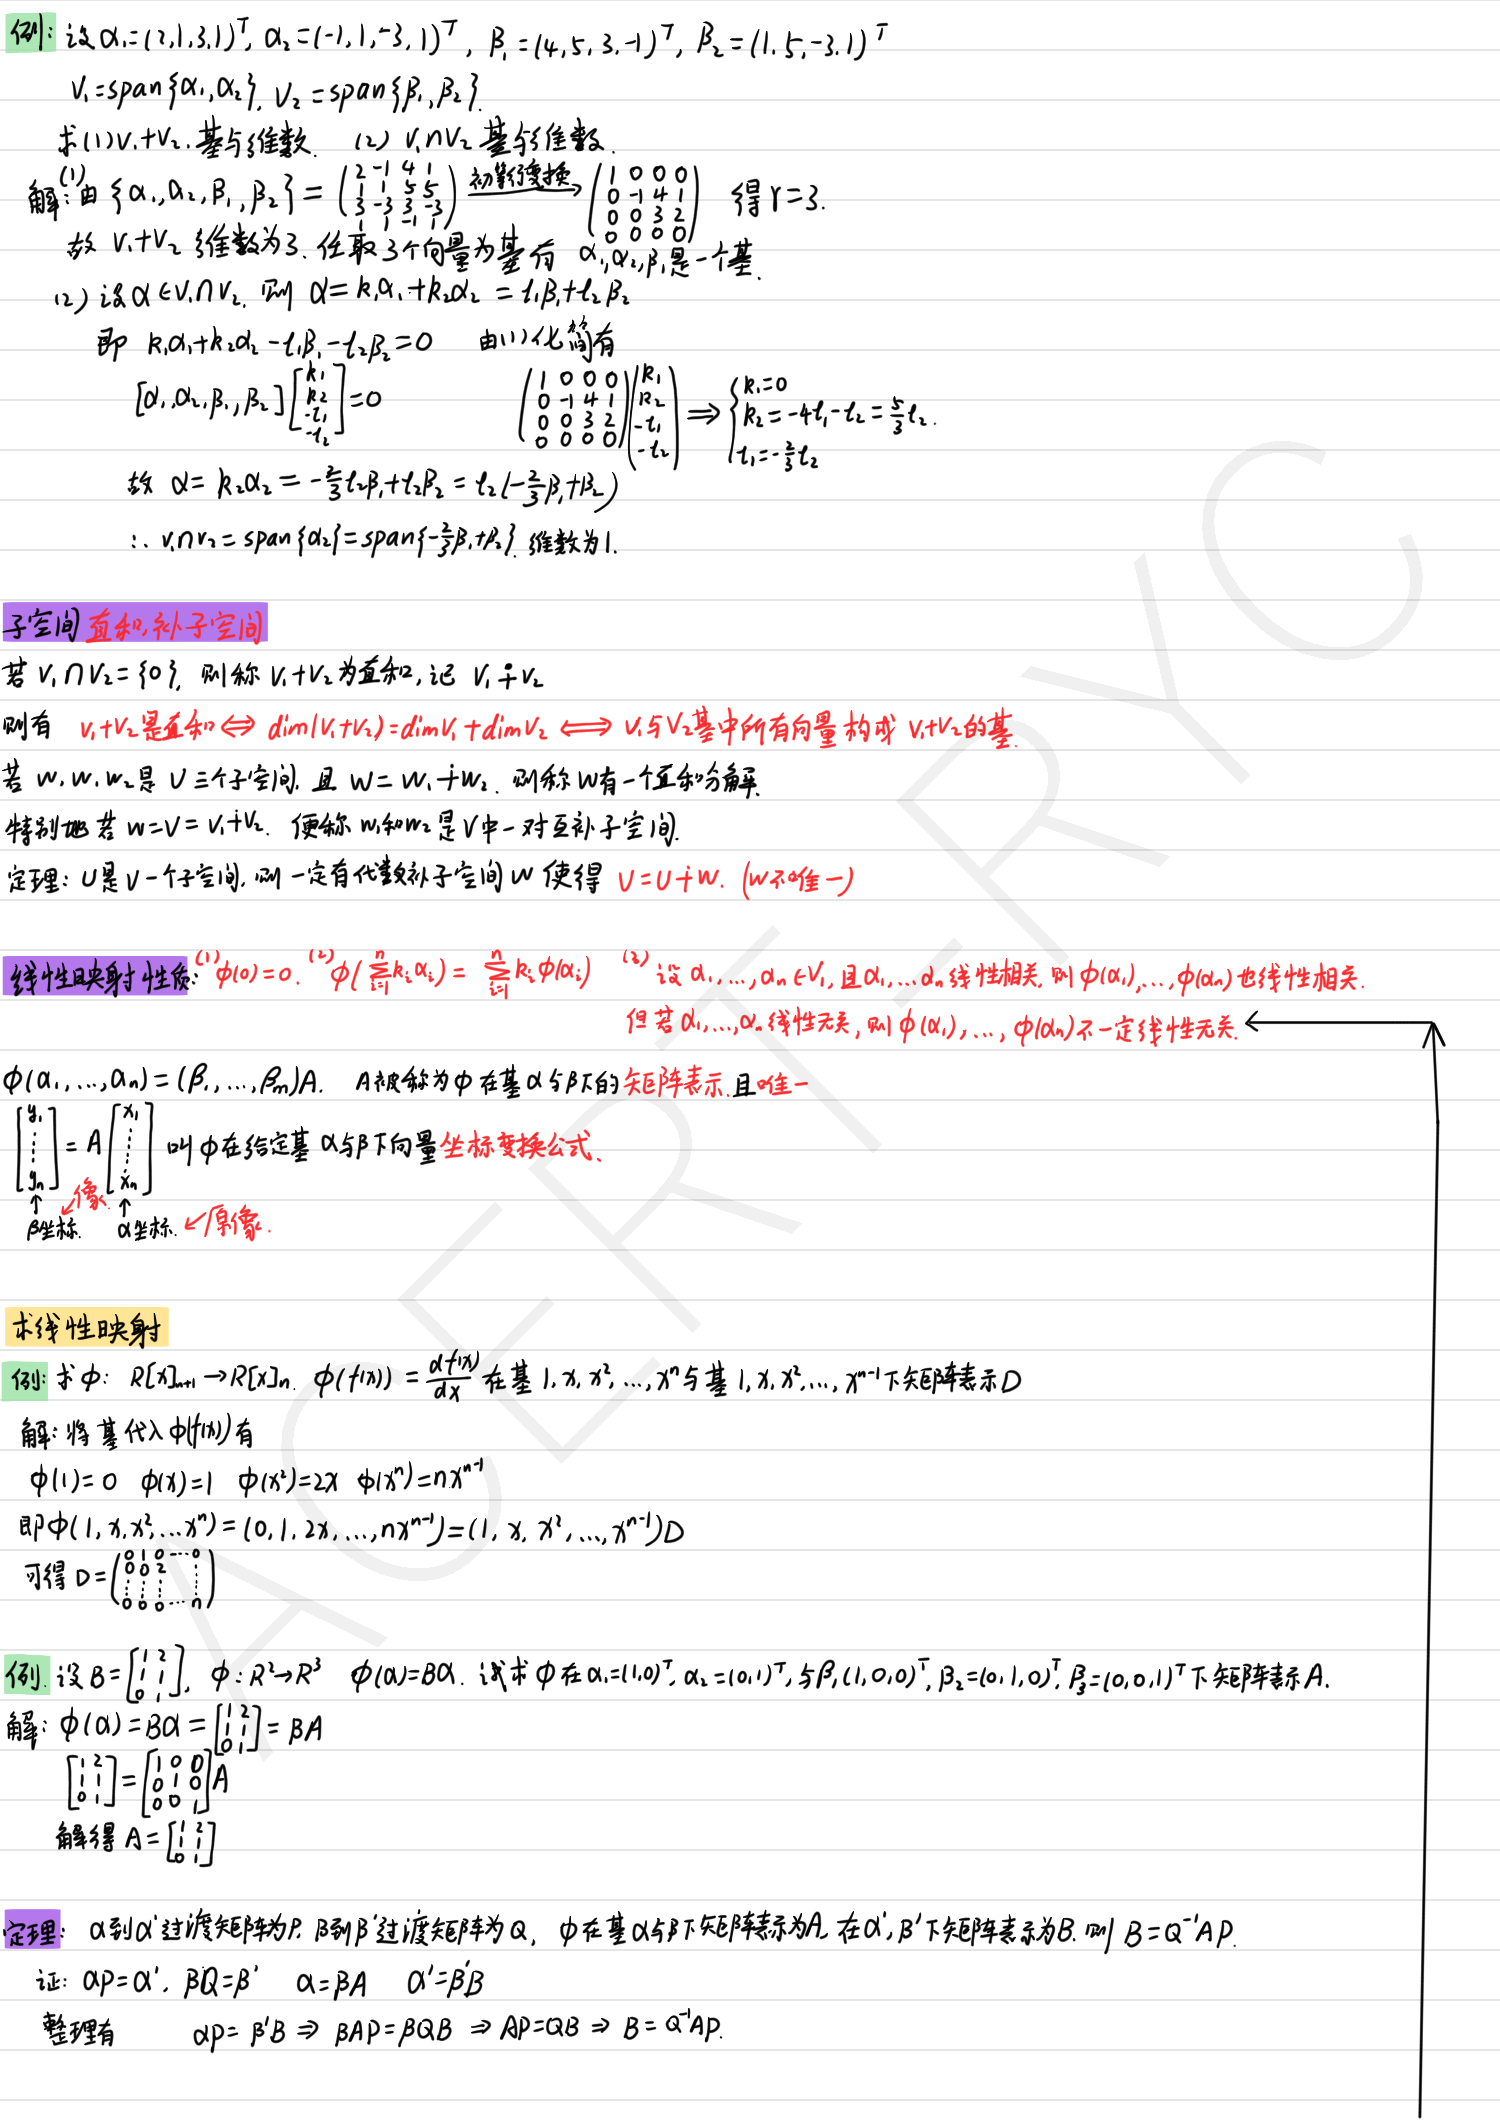 例: 设 α₁=(2,1,3,1)ᵀ, α₂=(-1,1,-3,1)ᵀ, β₁=(4,5,3,-1)ᵀ, β₂=(1,5,-3,1)ᵀ
V₁=span{α₁,α₂}. V₂=span{β₁,β₂}.
求(1)V₁+V₂.基与维数. (2) V₁∩V₂基与维数.
解:(1)由 {α₁,α₂,β₁,β₂} = (2 -1 4 1; 1 1 5 5; 3 -3 3 -3; 1 1 -1 1) 初等行变换→ (1 0 0 0; 0 -1 4 1; 0 0 3 2; 0 0 0 0) 得 r=3.
故 V₁+V₂ 维数为3. 任取3个向量为基有 α₁,α₂,β₁是一个基.
(2) 设α∈V₁∩V₂. 则 α=k₁α₁+k₂α₂=t₁β₁+t₂β₂
即 k₁α₁+k₂α₂-t₁β₁-t₂β₂=0 由(1)化简有
[α₁,α₂,β₁,β₂][k₁; k₂; -t₁; -t₂]=0 (1 0 0 0; 0 -1 4 1; 0 0 3 2; 0 0 0 0)(k₁; k₂; -t₁; -t₂) ⇒ {k₁=0; k₂=-4t₁-t₂=5/3t₂.; t₁=-2/3t₂
故 α=k₂α₂=-2/3t₂β₁+t₂β₂=t₂(-2/3β₁+β₂)
∴ V₁∩V₂=span{α₂}=span{-2/3β₁+β₂}. 维数为1.
子空间直和,补子空间
若 V₁∩V₂={0}, 则称 V₁+V₂为直和,记 V₁∔V₂
则有 V₁+V₂是直和⇔dim(V₁+V₂)=dimV₁+dimV₂⇔V₁与V₂基中所有向量构成 V₁+V₂的基.
若 W,W₁,W₂是 V 三个子空间, 且 W=W₁∔W₂. 则称W有一个直和分解.
特别地若 W=V=V₁∔V₂. 便称 W₁和W₂是V中一对互补子空间.
定理: U是V一个子空间, 则一定有代数补子空间W使得 V=U∔W. (W不唯一)
线性映射性质: (1)ϕ(0)=0. (2)ϕ(∑ⁿᵢ₌₁kᵢαᵢ)=∑ⁿᵢ₌₁kᵢϕ(αᵢ) (3)设α₁,…,αₙ∈V₁,且α₁,…αₙ线性相关,则ϕ(α₁),…,ϕ(αₙ)也线性相关.
但若α₁,…,αₙ线性无关,则ϕ(α₁),…,ϕ(αₙ)不一定线性无关.
ϕ(α₁,…,αₙ)=(β₁,…,βₘ)A. A被称为ϕ在基α与β下的矩阵表示.且唯一
[y₁; ⋮; yₙ]=A[x₁; ⋮; xₙ] 叫ϕ在给定基α与β下向量坐标变换公式.
↑ ↙像. ↑
β坐标. α坐标. ↙原像.
求线性映射
例: 求ϕ: R[x]ₙ₊₁→R[x]ₙ. ϕ(f(x))=df(x)/dx 在基1,x,x²,…,xⁿ与基1,x,x²,…,xⁿ⁻¹下矩阵表示D
解:将基代入ϕ(f(x))有
ϕ(1)=0 ϕ(x)=1 ϕ(x²)=2x ϕ(xⁿ)=nxⁿ⁻¹
即ϕ(1,x,x²,…xⁿ)=(0,1,2x,…,nxⁿ⁻¹)=(1,x,x²,…,xⁿ⁻¹)D
可得 D=(0 1 0 ⋯ 0; 0 0 2; ⋮ ⋮ ⋮ ⋮; 0 0 0 ⋯ n)
例. 设 B=[1 2; 1 1; 0 1], ϕ: R²→R³ ϕ(α)=Bα. 试求 ϕ在α₁=(1,0)ᵀ, α₂=(0,1)ᵀ, 与β₁(1,0,0)ᵀ, β₂=(0,1,0)ᵀ, β₃=(0,0,1)ᵀ下矩阵表示A.
解: ϕ(α)=Bα=[1 2; 1 1; 0 1]=βA
[1 2; 1 1; 0 1]=[1 0 0; 0 1 0; 0 0 1]A
解得 A=[1 2; 1 1; 0 1]
定理: α到α'过渡矩阵为P. β到β'过渡矩阵为Q, ϕ在基α与β下矩阵表示为A, 在α',β'下矩阵表示为B. 则 B=Q⁻¹AP.
证: αP=α'. βQ=β' α=βA α'=β'B
整理有 αP=β'B ⇒ βAP=βQB ⇒ AP=QB ⇒ B=Q⁻¹AP.
ACERT-RYC